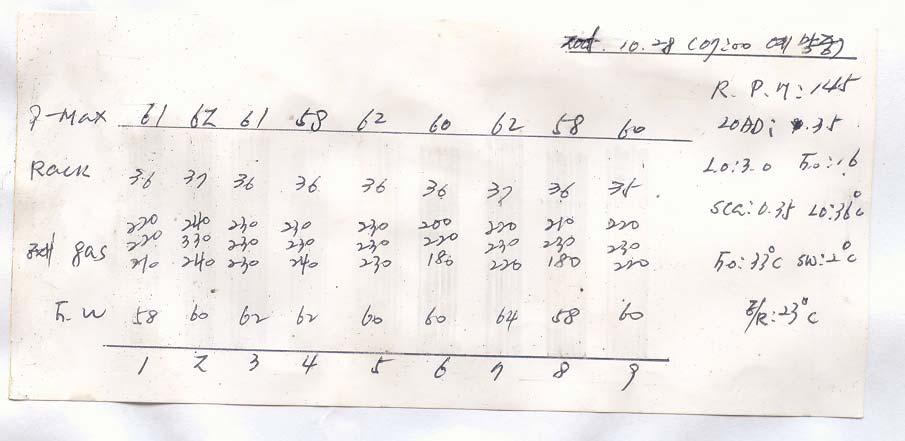 10.28 (07:00 예방중)
P-Max 61 62 61 58 62 60 62 58 60
R.P.M: 145
LOAD: 0.35
Rack 36 37 36 36 36 36 37 36 35
LO:3.0 F.o:1.6
sca:0.35 LO:36°c
220 240 230 230 230 200 220 210 220
gas 220 330 230 230 230 220 230 230 230
210 240 230 240 230 180 220 180 220
F.o:33°c sw:2°c
F.W 58 60 62 62 60 60 64 58 60
E/R:23°c
1 2 3 4 5 6 7 8 9